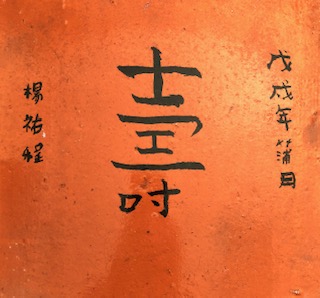 戊戌年蒲月
壽
楊祐程